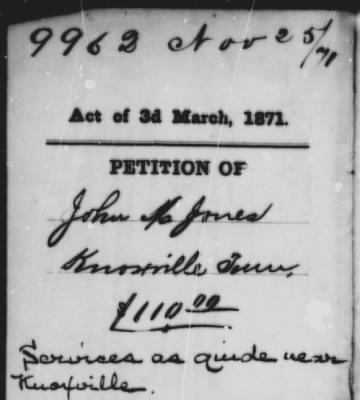 9962 Nov 25/71
Act of 3d March, 1871.
PETITION OF
John M Jones
Knoxville Tenn.
$110.00
Services as guide near
Knoxville.